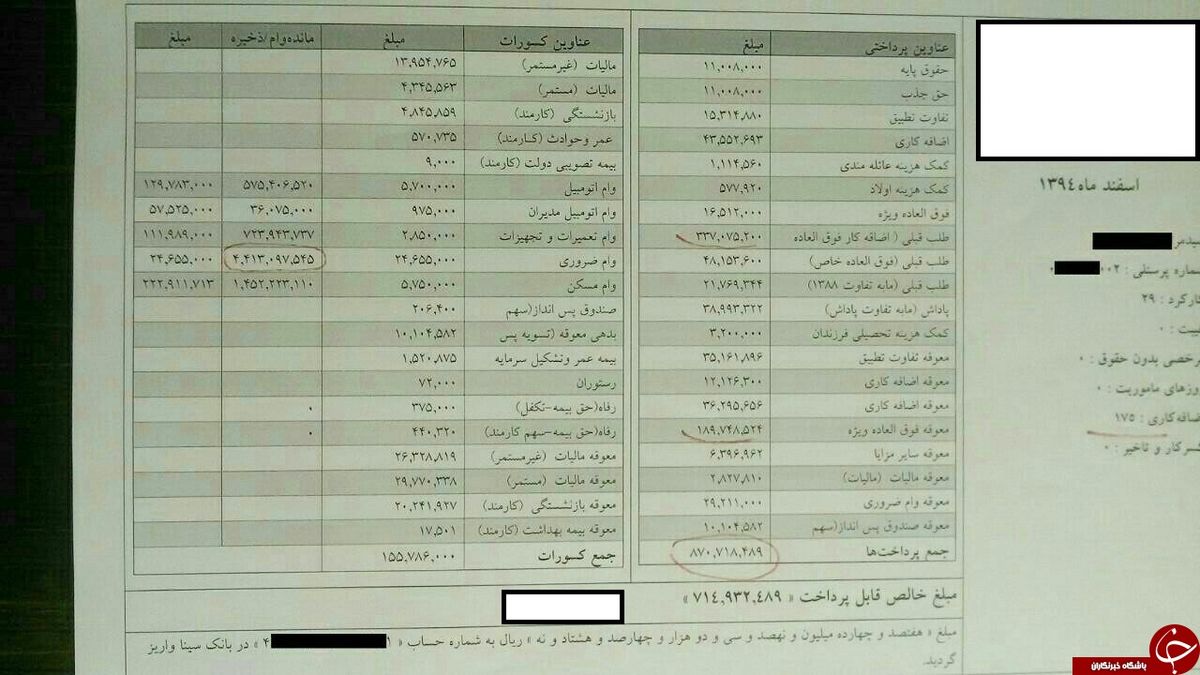 عناوین پرداختی مبلغ
حقوق پایه ۱۱,۰۰۸,۰۰۰
حق جذب ۱۱,۰۰۸,۰۰۰
تفاوت تطبیق ۱۵,۳۱۴,۸۸۰
اضافه کاری ۴۳,۵۵۲,۶۹۳
کمک هزینه عائله مندی ۱,۱۱۴,۵۶۰
کمک هزینه اولاد ۵۷۷,۹۲۰
فوق العاده ویژه ۱۶,۵۱۲,۰۰۰
طلب قبلی ( اضافه کار فوق العاده ۳۳۷,۰۷۵,۲۰۰
طلب قبلی (فوق العاده خاص) ۴۸,۱۵۳,۶۰۰
طلب قبلی (مابه تفاوت ۱۳۸۸) ۲۱,۷۶۹,۳۴۴
پاداش (مابه تفاوت پاداش) ۳۸,۹۹۳,۳۲۲
کمک هزینه تحصیلی فرزندان ۳,۲۰۰,۰۰۰
معوقه تفاوت تطبیق ۳۵,۱۶۱,۸۹۶
معوقه اضافه کاری ۱۲,۱۲۶,۳۰۰
معوقه اضافه کاری ۳۶,۲۹۵,۶۵۶
معوقه فوق العاده ویژه ۱۸۹,۷۴۸,۵۲۴
معوقه سایر مزایا ۶,۳۹۶,۹۶۲
معوقه مالیات (مالیات) ۲,۸۲۷,۸۱۰
معوقه وام ضروری ۲۹,۲۱۱,۰۰۰
معوقه صندوق پس انداز(سهم ۱۰,۱۰۴,۵۸۲
جمع پرداخت‌ها ۸۷۰,۷۱۸,۴۸۹
عناوین کسورات مبلغ مانده‌وام/ذخیره مبلغ
مالیات (غیرمستمر) ۱۳,۹۵۴,۷۶۵
مالیات (مستمر) ۴,۳۴۵,۵۶۳
بازنشستگی (کارمند) ۴,۸۴۵,۸۵۹
عمر وحوادث (کارمند) ۵۷۰,۷۳۵
بیمه تصویبی دولت (کارمند) ۹,۰۰۰
وام اتومبیل ۵,۷۰۰,۰۰۰ ۵۷۵,۴۰۶,۵۲۰ ۱۲۹,۷۸۳,۰۰۰
وام اتومبیل مدیران ۹۷۵,۰۰۰ ۳۶,۰۷۵,۰۰۰ ۵۷,۵۲۵,۰۰۰
وام تعمیرات و تجهیزات ۲,۸۵۰,۰۰۰ ۷۲۳,۹۴۳,۷۳۷ ۱۱۱,۹۸۹,۰۰۰
وام ضروری ۲۴,۶۵۵,۰۰۰ ۴,۴۱۳,۰۹۷,۵۴۵ ۲۴,۶۵۵,۰۰۰
وام مسکن ۵,۷۵۰,۰۰۰ ۱,۴۵۲,۲۲۳,۱۱۰ ۲۲۲,۹۱۱,۷۱۳
صندوق پس انداز(سهم ۲۰۶,۴۰۰
بدهی معوقه (تسویه پس ۱۰,۱۰۴,۵۸۲
بیمه عمر وتشکیل سرمایه ۱,۵۲۰,۸۷۵
رستوران ۷۲,۰۰۰
رفاه(حق بیمه-تکفل) ۳۷۵,۰۰۰ ۰
رفاه(حق بیمه-سهم کارمند) ۴۴۰,۳۲۰ ۰
معوقه مالیات (غیرمستمر) ۲۶,۳۲۸,۸۱۹
معوقه مالیات (مستمر) ۲۹,۷۷۰,۳۳۸
معوقه بازنشستگی (کارمند) ۲۰,۲۴۱,۹۲۷
معوقه بیمه بهداشت (کارمند) ۱۷,۵۰۱
جمع کسورات ۱۵۵,۷۸۶,۰۰۰
اسفند ماه ۱۳۹۴
سیدمر
شماره پرسنلی : ۰۰۲ ۰
کارکرد : ۲۹
غیبت : ۰
مرخصی بدون حقوق : ۰
روزهای ماموریت : ۰
اضافه‌کاری : ۱۷۵
کسرکار و تاخیر : ۰
مبلغ خالص قابل پرداخت « ۷۱۴,۹۳۲,۴۸۹ »
مبلغ « هفتصد و چهارده میلیون و نهصد و سی و دو هزار و چهارصد و هشتاد و نه » ریال به شماره حساب « ۱ ۴ » در بانک سینا واریز
گردید.
باشگاه خبرنگاران